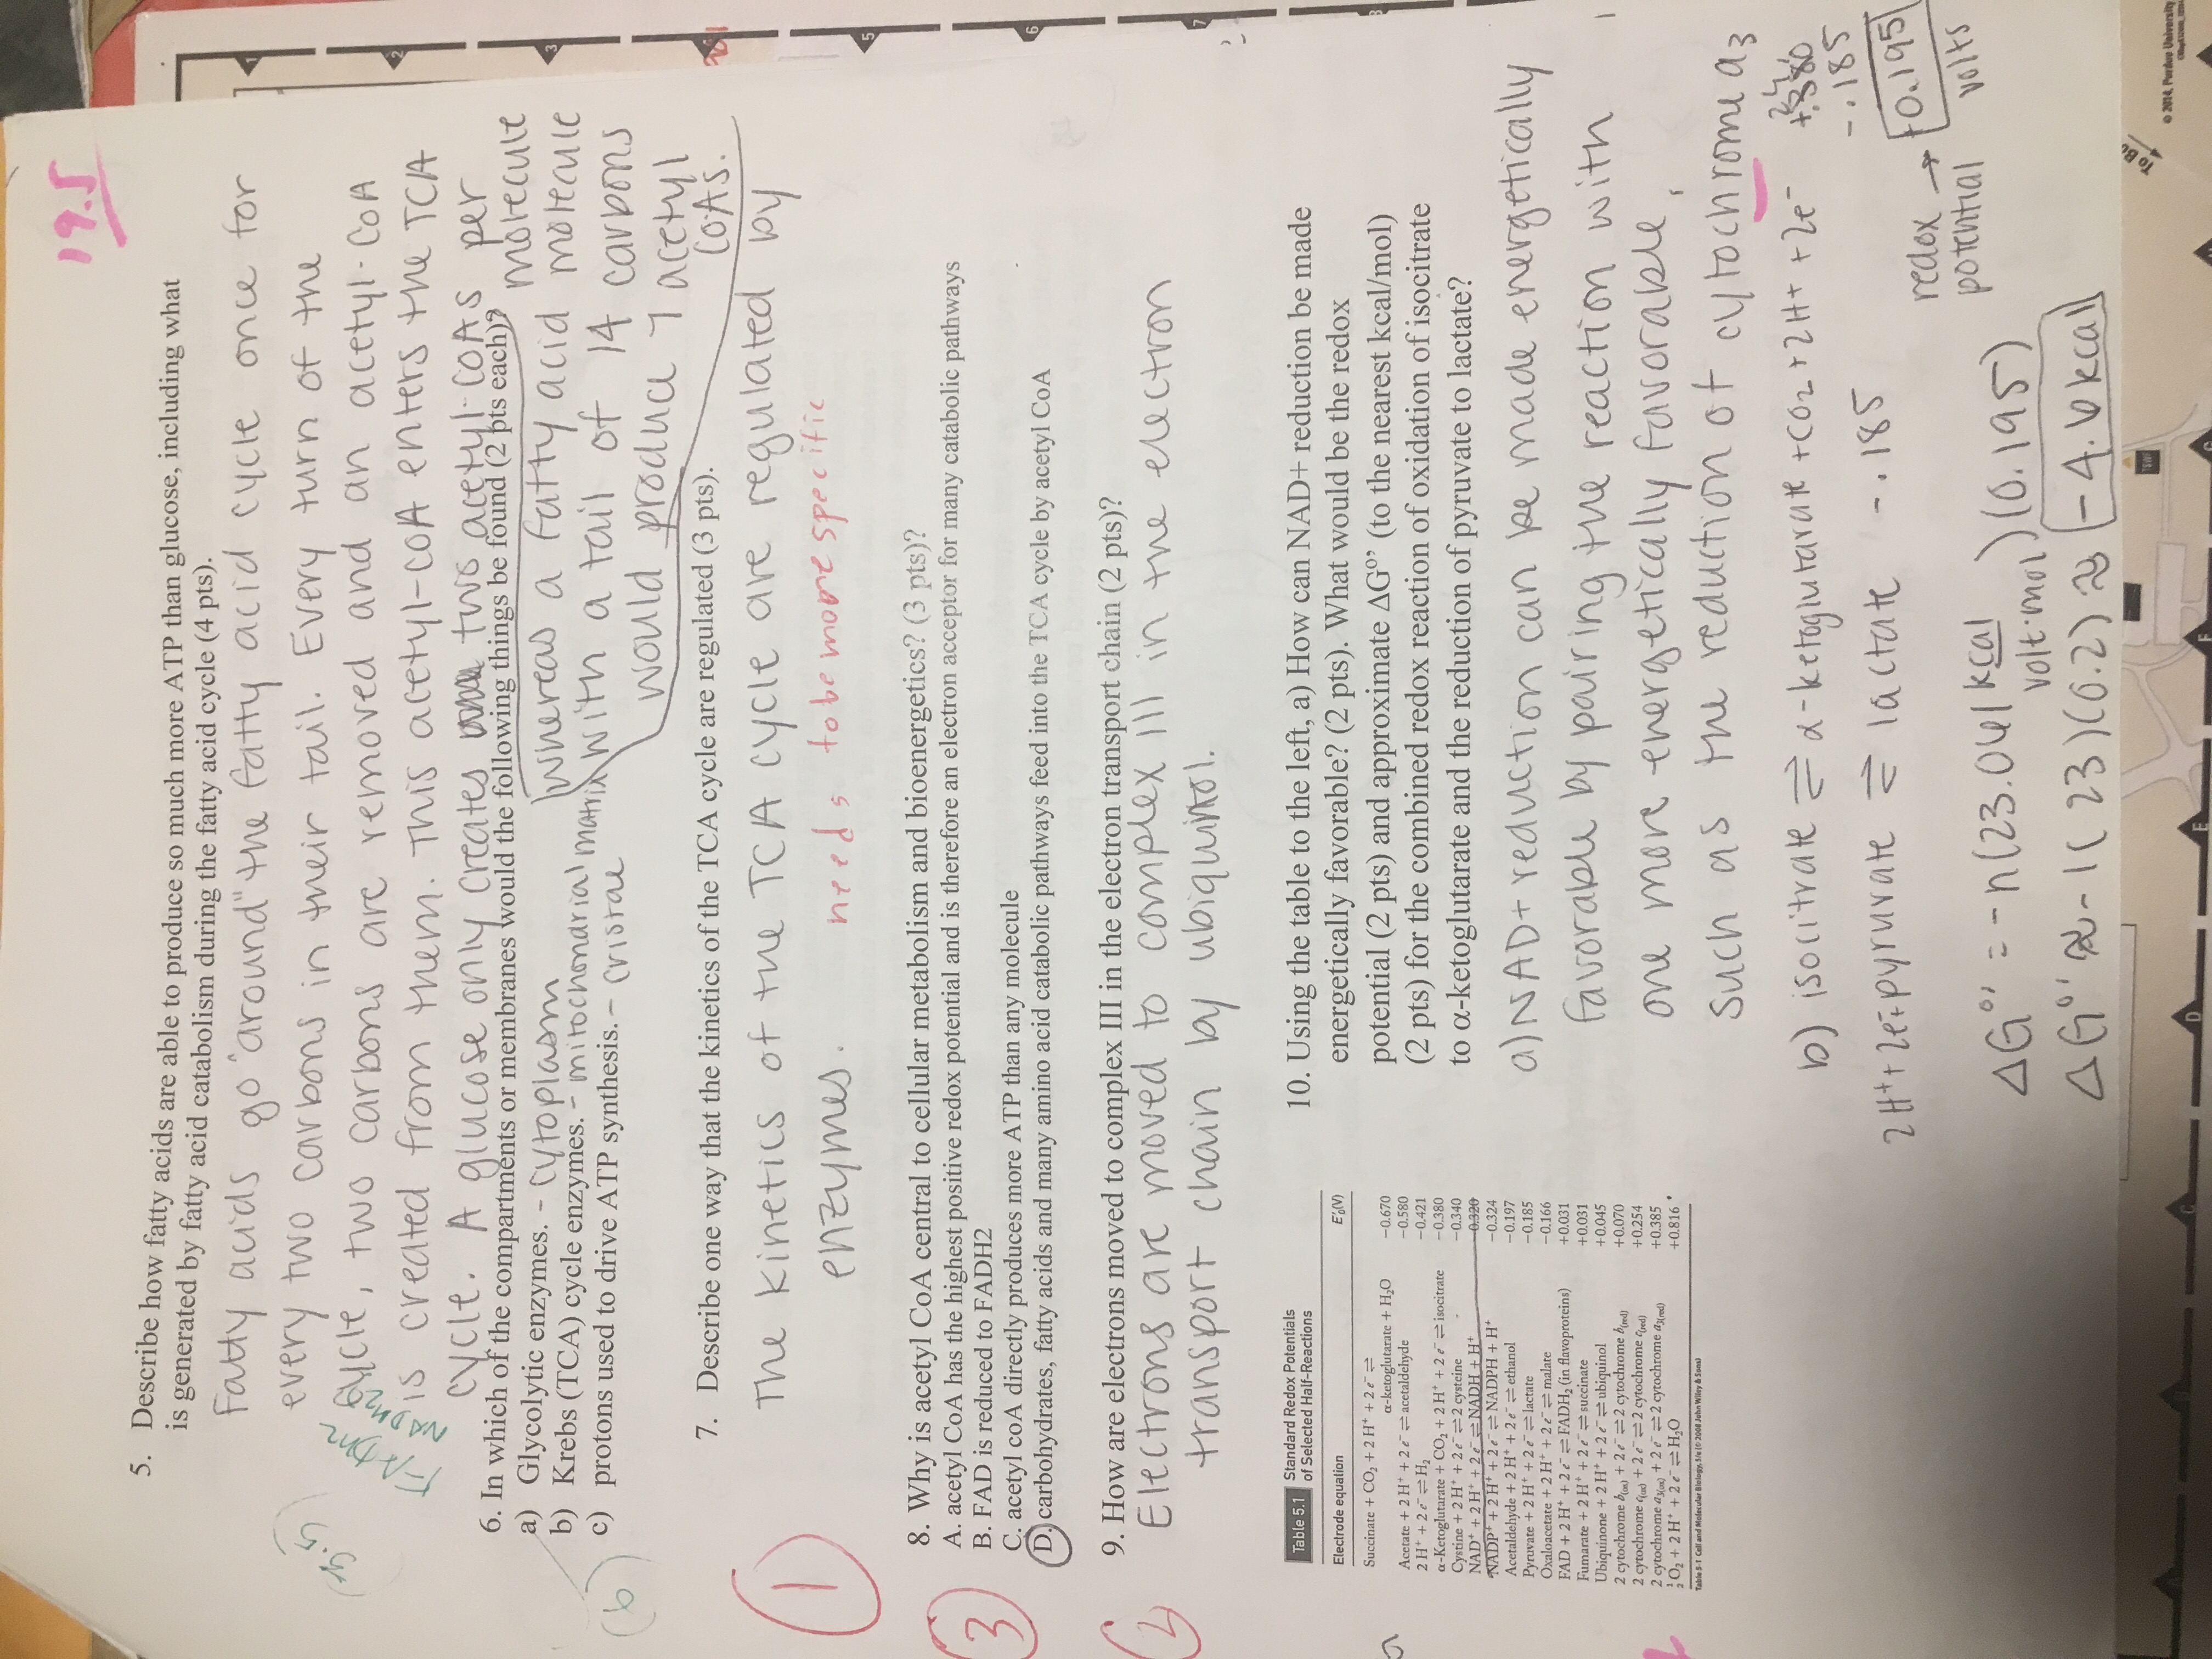 19.5
5. Describe how fatty acids are able to produce so much more ATP than glucose, including what
is generated by fatty acid catabolism during the fatty acid cycle (4 pts).
Fatty acids go "around" the fatty acid cycle once for
every two carbons in their tail. Every turn of the
cycle, two carbons are removed and an acetyl-CoA
is created from them. This acetyl-CoA enters the TCA
cycle. A glucose only creates two acetyl-CoAs per
molecule
whereas a fatty acid molecule
with a tail of 14 carbons
would produce 7 acetyl
CoAs.
3.5
FADH2
6. In which of the compartments or membranes would the following things be found (2 pts each)?
a) Glycolytic enzymes. - cytoplasm
b) Krebs (TCA) cycle enzymes. - mitochondrial matrix
c) protons used to drive ATP synthesis. - cristae
6
7. Describe one way that the kinetics of the TCA cycle are regulated (3 pts).
The kinetics of the TCA cycle are regulated by
enzymes. needs to be more specific
1
8. Why is acetyl CoA central to cellular metabolism and bioenergetics? (3 pts)?
A. acetyl CoA has the highest positive redox potential and is therefore an electron acceptor for many catabolic pathways
B. FAD is reduced to FADH2
C. acetyl coA directly produces more ATP than any molecule
D. carbohydrates, fatty acids and many amino acid catabolic pathways feed into the TCA cycle by acetyl CoA
3
9. How are electrons moved to complex III in the electron transport chain (2 pts)?
Electrons are moved to complex III in the electron
transport chain by ubiquinol.
2
Table 5.1 Standard Redox Potentials
of Selected Half-Reactions
Electrode equation E'₀(V)
Succinate + CO₂ + 2 H⁺ + 2 e⁻ ⇌
α-ketoglutarate + H₂O −0.670
Acetate + 2 H⁺ + 2 e⁻ ⇌ acetaldehyde −0.580
2 H⁺ + 2 e⁻ ⇌ H₂ −0.421
α-Ketoglutarate + CO₂ + 2 H⁺ + 2 e⁻ ⇌ isocitrate −0.380
Cystine + 2 H⁺ + 2 e⁻ ⇌ 2 cysteine −0.340
NAD⁺ + 2 H⁺ + 2 e⁻ ⇌ NADH + H⁺ −0.320
NADP⁺ + 2 H⁺ + 2 e⁻ ⇌ NADPH + H⁺ −0.324
Acetaldehyde + 2 H⁺ + 2 e⁻ ⇌ ethanol −0.197
Pyruvate + 2 H⁺ + 2 e⁻ ⇌ lactate −0.185
Oxaloacetate + 2 H⁺ + 2 e⁻ ⇌ malate −0.166
FAD + 2 H⁺ + 2 e⁻ ⇌ FADH₂ (in flavoproteins) +0.031
Fumarate + 2 H⁺ + 2 e⁻ ⇌ succinate +0.031
Ubiquinone + 2 H⁺ + 2 e⁻ ⇌ ubiquinol +0.045
2 cytochrome b(ox) + 2 e⁻ ⇌ 2 cytochrome b(red) +0.070
2 cytochrome c(ox) + 2 e⁻ ⇌ 2 cytochrome c(red) +0.254
2 cytochrome a₃(ox) + 2 e⁻ ⇌ 2 cytochrome a₃(red) +0.385
½ O₂ + 2 H⁺ + 2 e⁻ ⇌ H₂O +0.816
Table 5-1 Cell and Molecular Biology, 5/e (© 2008 John Wiley & Sons)
10. Using the table to the left, a) How can NAD+ reduction be made
energetically favorable? (2 pts). What would be the redox
potential (2 pts) and approximate ΔG°' (to the nearest kcal/mol)
(2 pts) for the combined redox reaction of oxidation of isocitrate
to α-ketoglutarate and the reduction of pyruvate to lactate?
a) NAD+ reduction can be made energetically
favorable by pairing the reaction with
one more energetically favorable,
such as the reduction of cytochrome a₃
b) isocitrate ⇌ α-ketoglutarate + CO₂ + 2H+ + 2e⁻ +.380
2H⁺ + 2e⁻ + pyruvate ⇌ lactate -.185
-.185
+0.195
redox → volts
potential
ΔG°' = -n(23.061 kcal
volt·mol)(0.195)
ΔG°' ≈ -1(23)(0.2) ≈ -4.6 kcal
1
2
3
5
6
7
C
D
E
F
G
To Bu
© 2014, Purdue University